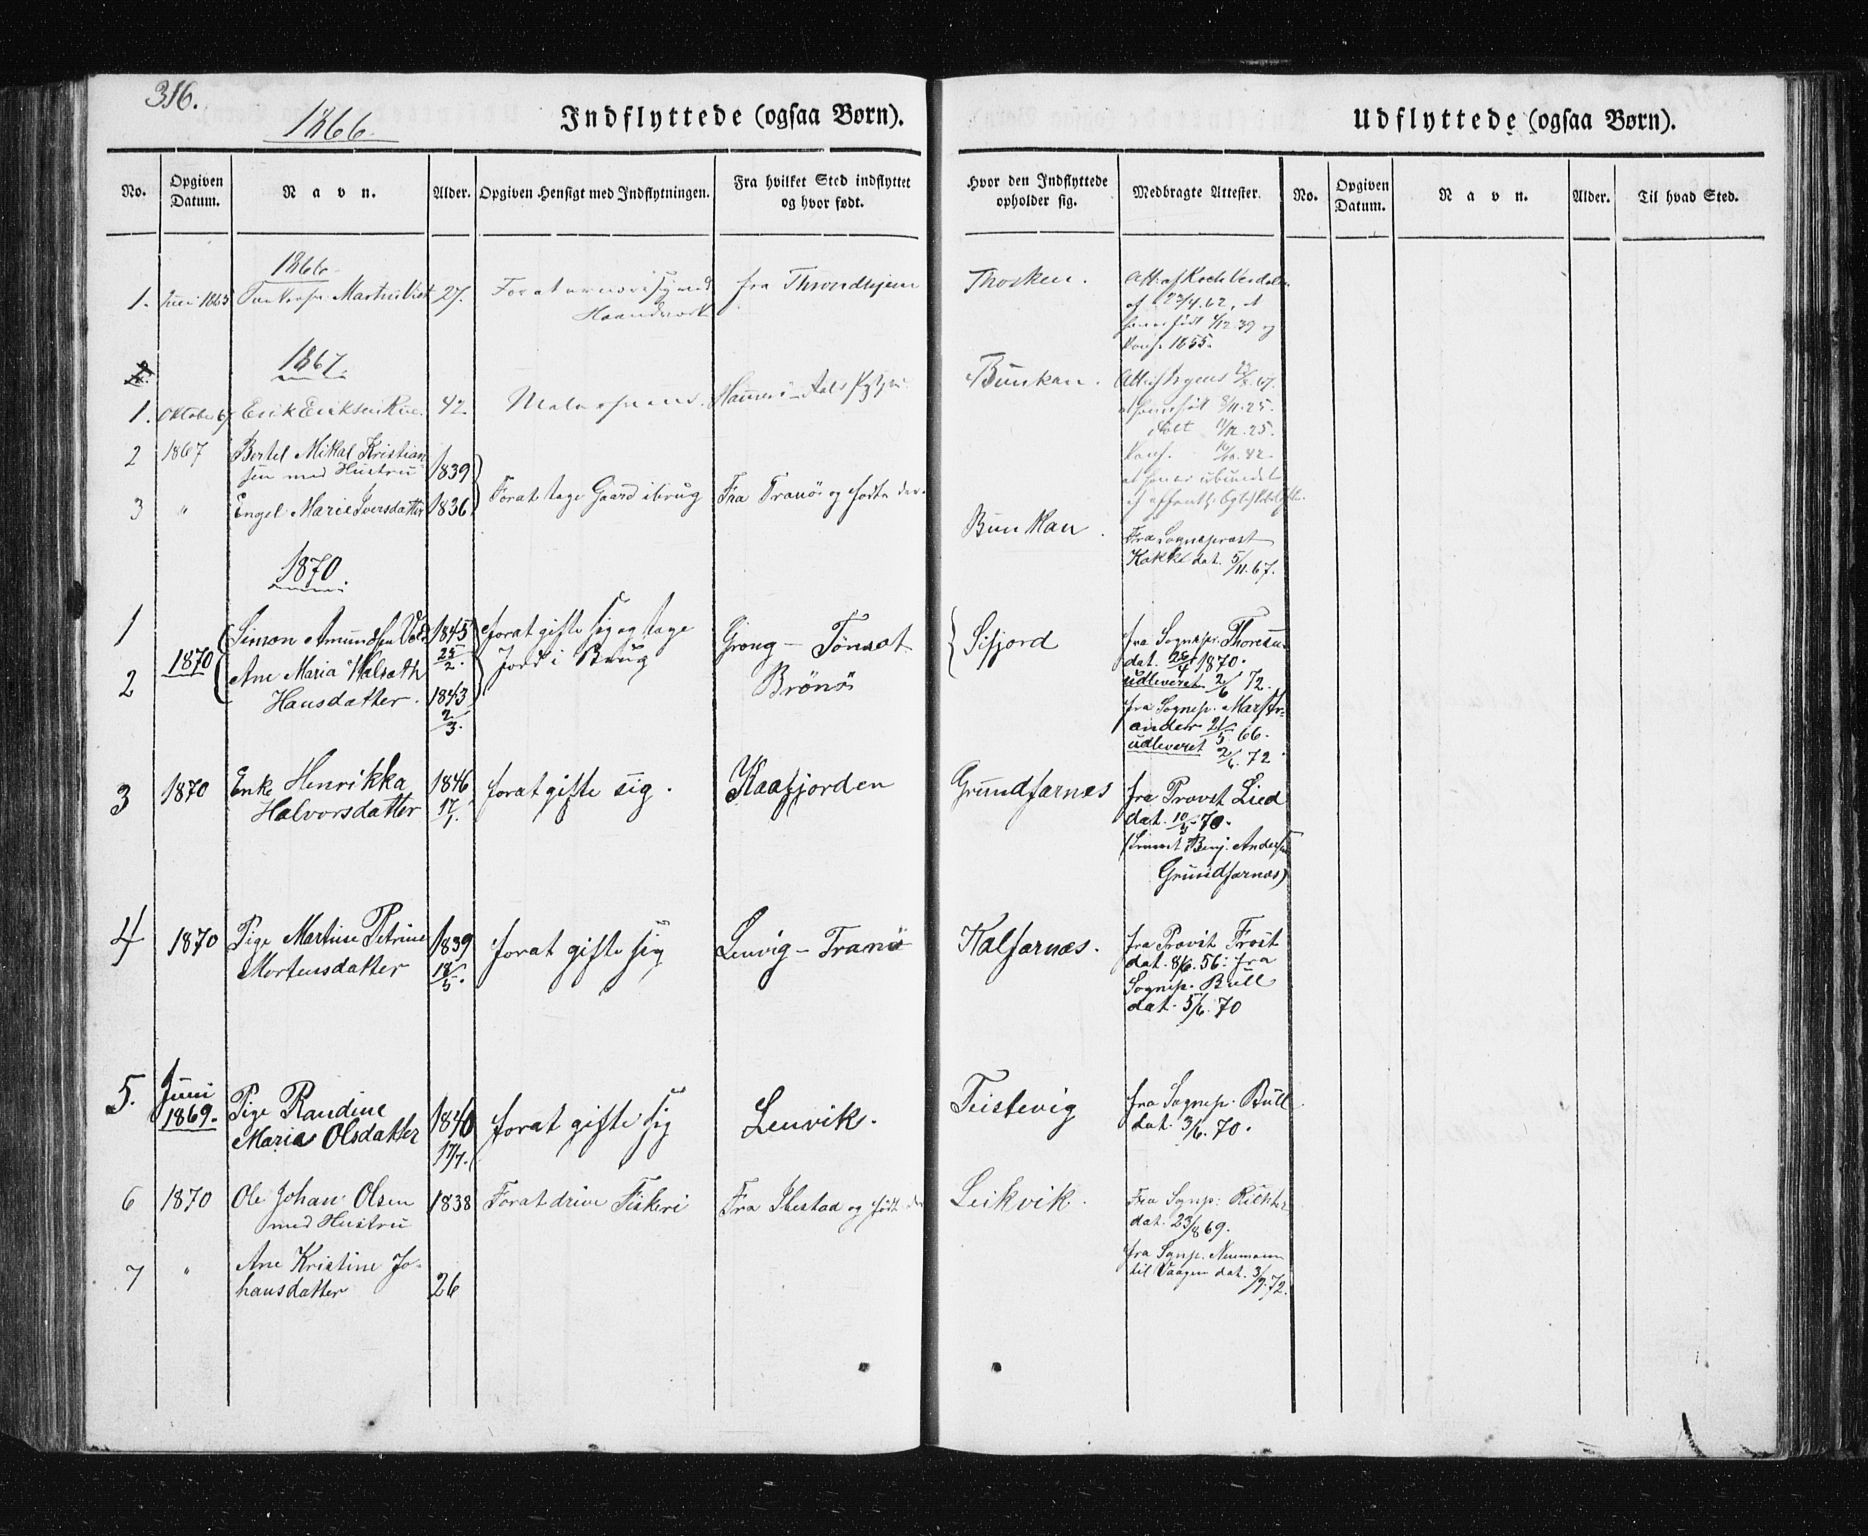 316.
1866.
Indflyttede (ogsaa Børn).
Udflyttede (ogsaa Børn).
No. Opgiven Datum. Navn. Alder. Opgiven Hensigt med Indflytningen. Fra hvilket Sted indflyttet og hvor født. Hvor den Indflyttede opholder sig. Medbragte Attester. No. Opgiven Datum. Navn. Alder. Til hvad Sted.
1866.
1. Juni 1865 Martin 27. Forat sig med fra Throndhjem Thorsken. Att. af Koch
Haandværk af 23/4.62, at
født 4/12.39 og
konf. 1855.
1867.
1. Oktober 67 Erik Eriksen 42 i Bunkan.
født 8/11.25.
døbt 11/12.25.
Konf.
2 1867 Bertel Mikal Kristian
sen med Hustru 1839
Forat tage Gaard i brug Fra Tranö og födte der.
3 " Engel Marie Iversdatter 1836
Bunkan.
Fra Sogneprest
dat. 5/11.67.
1870.
1 1870 Simon Amundsen 1845 25/2. forat gifte sig og tage Grong – Sifjord fra Sognepr.
Jord i Brug dat. 1870.
udleveret 2/6 72.
2 Ane Maria
Hansdatter. 1843 2/3. Brönö fra Sognep.
ander 21/5 66.
udleveret 2/6.72.
3 1870 Enke Henrikka 1846 forat gifte sig. Kaafjorden Grundfarnes fra Provst Lied
Halvorsdatter 17/1. dat. 70.
Benj. Andersen
Grundfarnes)
4 1870 Pige Martine Petrine 1839 forat gifte sig Lenvig – Tranö Kalfarnes. fra Provst Frost
Mortensdatter 18/5. dat. 8/6.56: fra
Sognep. Bull
dat. 5/6.70
5. Juni
1869. Pige Randine 1840 forat gifte sig Lenvik. Teistevig fra Sognep. Bull
Maria Olsdatter 17/7. dat. 3/6.70.
6 1870 Ole Johan Olsen 1838 Forat drive Fiskeri Fra Ibestad og födt der Leikvik. Fra Sognp.
med Hustru dat. 23/8 69.
7 " Ane Kristine Jo-
hansdatter 26 fra Sgnp. Neumann
til Vaagen dat. 72.